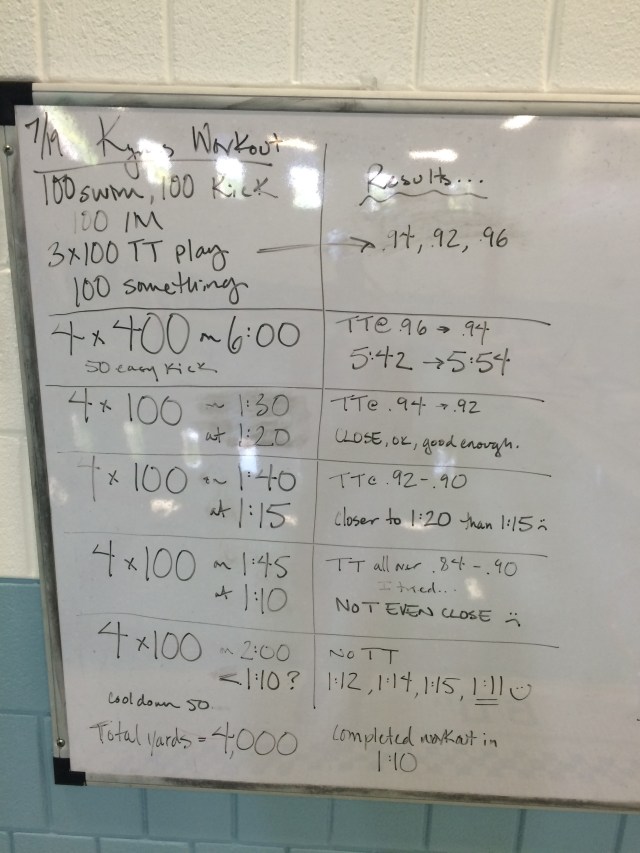 7/19 Workout
100 swim, 100 Kick
100 IM
3x100 TT play
100 something
Results...
.94, .92, .96
4 x 400 on 6:00
50 easy kick
TT@ .96 → .94
5:42 → 5:54
4 x 100 on 1:30
at 1:20
TT@ .94 → .92
CLOSE, OK, good enough.
4 x 100 on 1:40
at 1:15
TT@ .92 - .90
Closer to 1:20 than 1:15 :(
4 x 100 on 1:45
at 1:10
TT all over .84 - .90
I tried...
NOT EVEN CLOSE :(
4 x 100 on 2:00
<1:10?
No TT
1:12, 1:14, 1:15, 1:11 :)
Cool down 50
Total yards = 4,000
Completed workout in
1:10